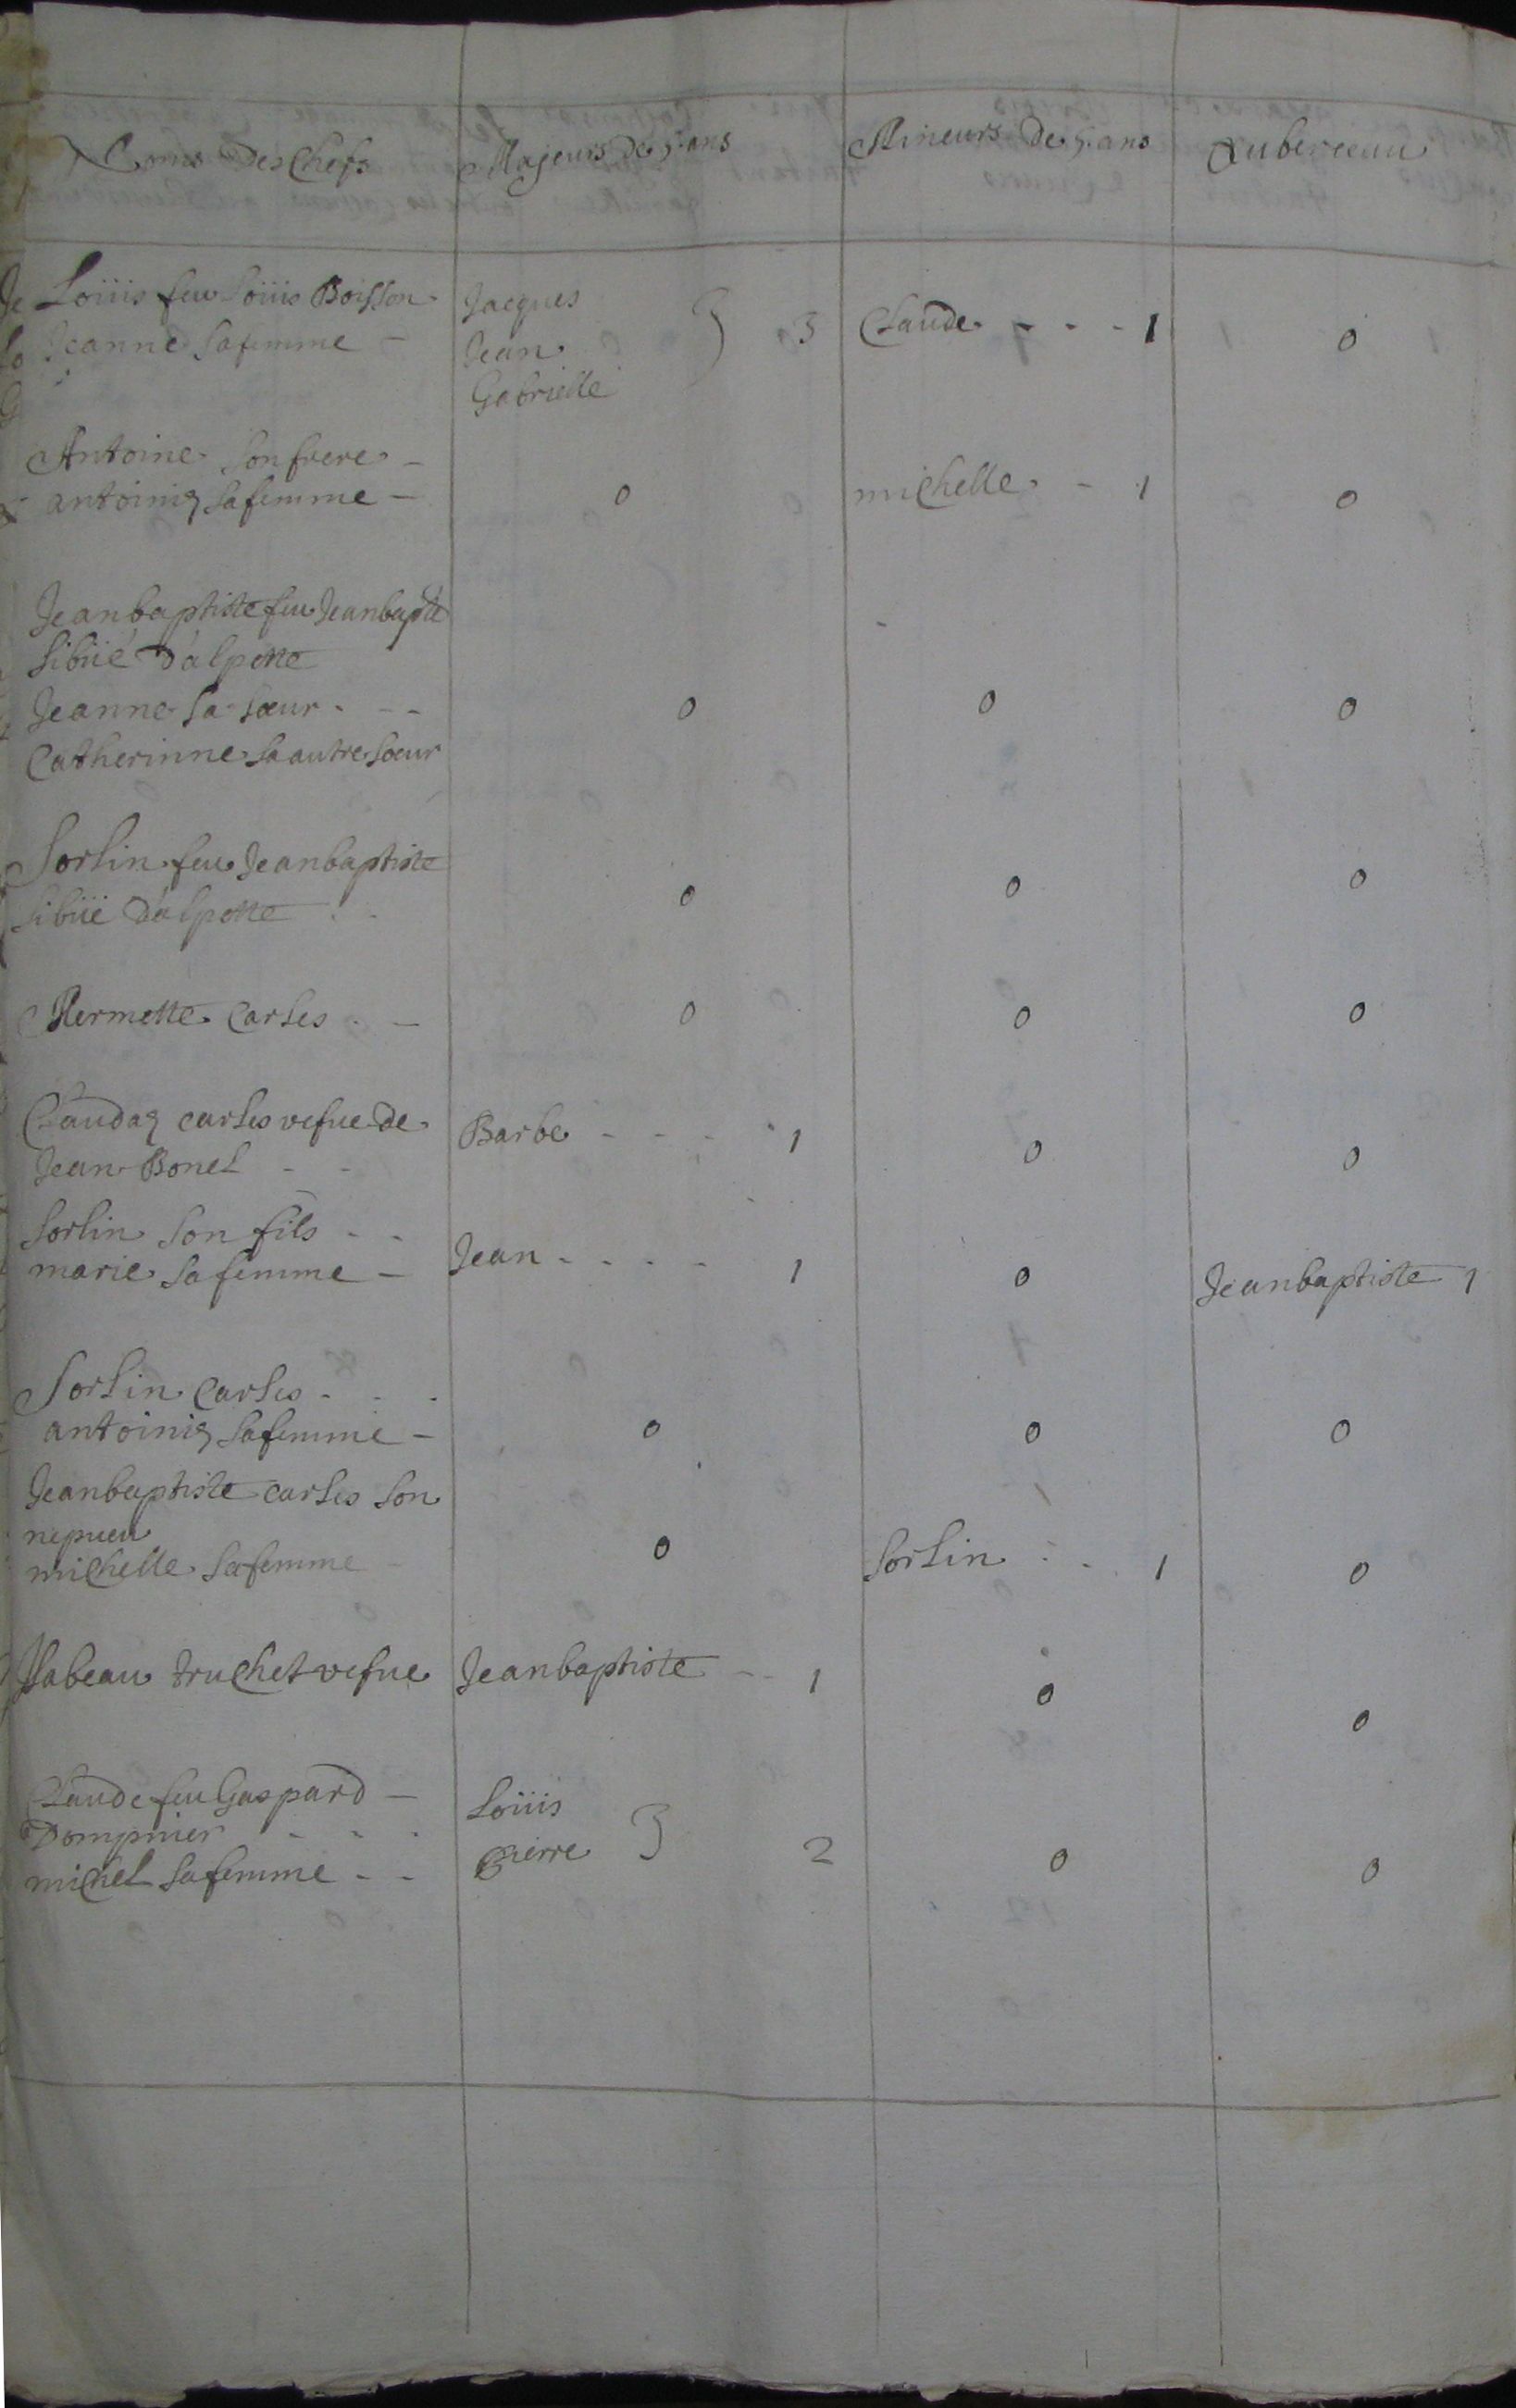 Noms Des Chefs Majeurs de 5 ans Mineurs de 5 ans Au berceau
Loüis feu Loüis Boisson Jacques
Jeanne sa femme - Jean 3 Claude - - - 1 0
Gabrielle
Antoine son frere -
sa femme - 0 michelle - 1 0
Jeanbaptiste feu Jeanbapte
sibüé d'alpette
Jeanne sa sœur - - - 0 0 0
Catherinne sa autre sœur
Sorlin feu Jeanbaptiste
sibüé d'alpette 0 0 0
Mermette Carles - 0 0 0
carles vefue de Barbe - - - 1
Jean Bonel - - 0 0
sorlin son fils - -
marie sa femme - Jean - - - - 1 0 Jeanbaptiste 1
Sorlin Carles - - -
sa femme - 0 0 0
Jeanbaptiste carles son
nepueu
michelle sa femme - 0 sorlin - - 1 0
Isabeau truchet vefue Jeanbaptiste - - 1 0 0
Claude feu Gaspard - Loüis
Dompnier - - - Pierre 2
michel sa femme - - 0 0